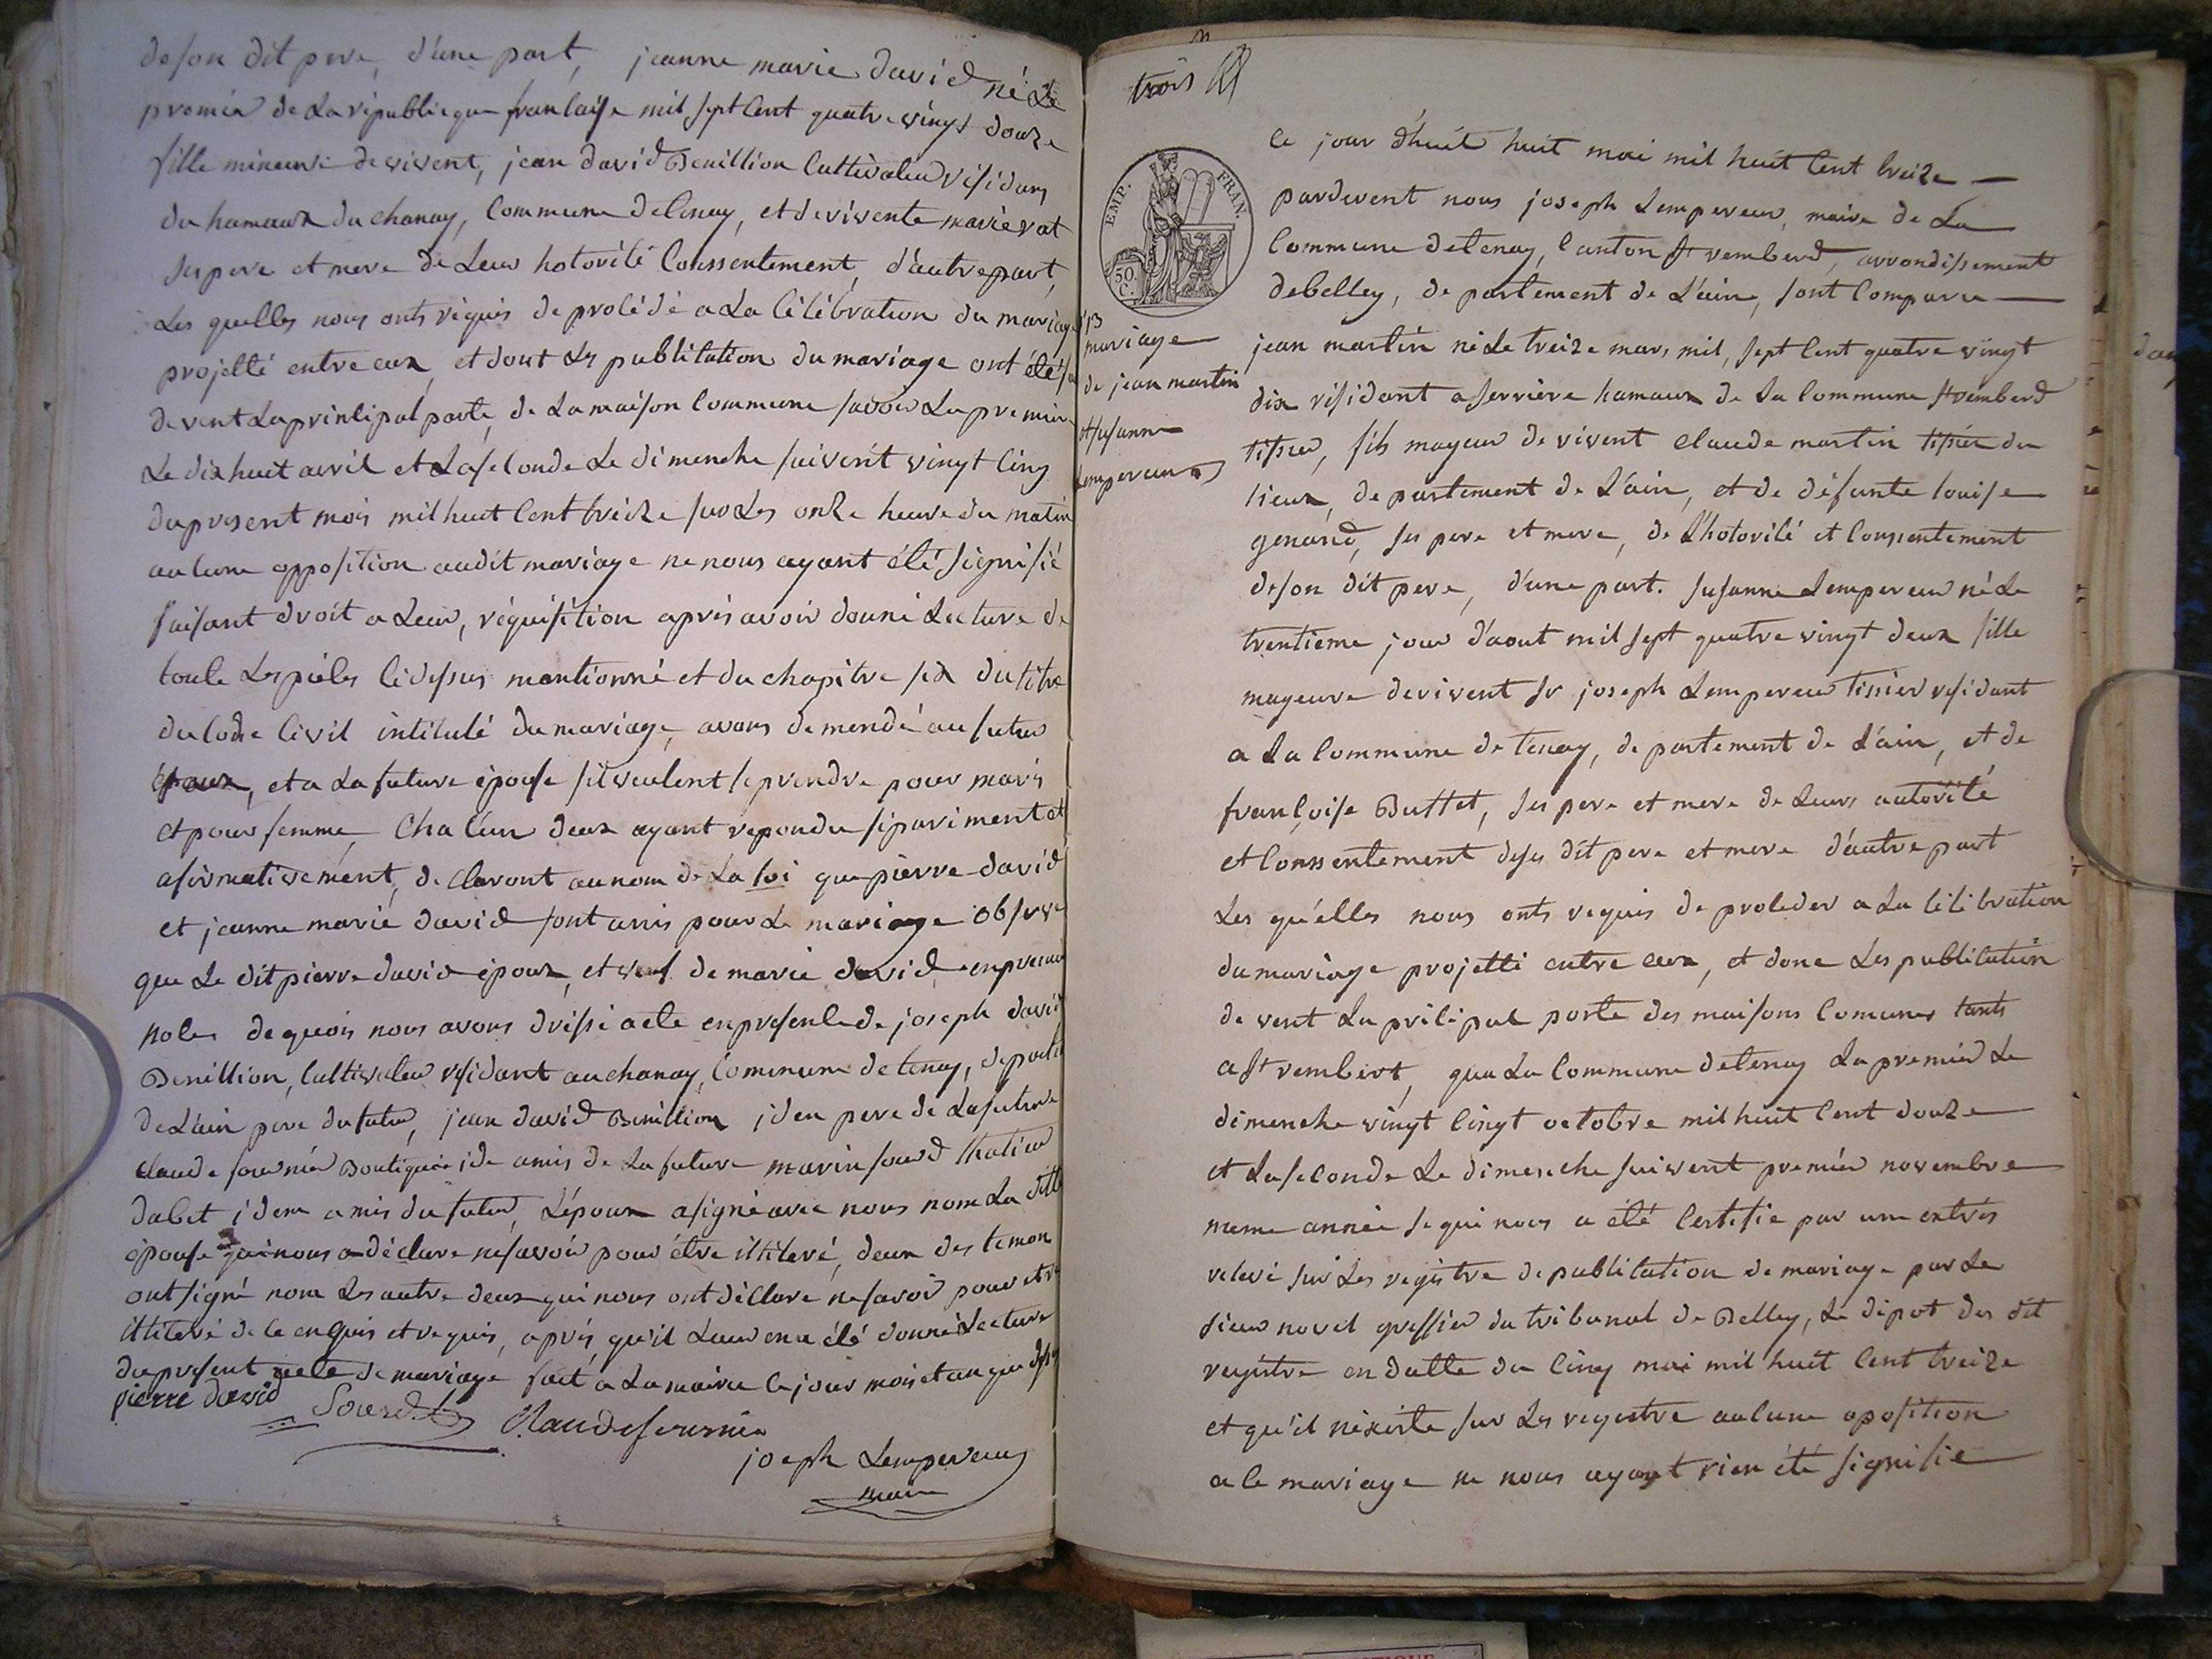 de son dit pere, d'une part, jeanne marie david né le
premier de la république francaise mil sept cent quatre vingt douze
fille mineure de vivent, jean david Benillion cultivateur résidans
du hamaux du chanay, commune de tenay, et de vivente marie
ses pere et mere de leur hotorité conssentement, d'autre part,
les quelles nous onts réquis de procédé a la célébration du mariage
projetté entre eux, et dont les publication du mariage ont été
devent la principal porte, de la maison commune savoir la premier
le dix huit avril et la seconde le dimenche suivent vingt cinq
du present mois mil huit cent treize sur les onze heure du matin
aucune opposition audit mariage ne nous ayant été signifié
faisant droit a leur, réquisition après avoir donné lecture de
toute les pièces cidessus mentionné et du chapitre six du titre
du code civil intitulé du mariage, avons demendé au futur
époux, et a la future épouse sil veulent se prendre pour maris
et pour femme, chacun deux ayant répondu séparément et
afirmativement, declaront au nom de la loi que pierre david
et jeanne marie david sont unis pour le mariage observe
que le dit pierre david époux, et veuf de marie david en premier
noces de quois nous avons dressé acte en presence de joseph david
Benillion, cultivateur résidant au chanay, commune de tenay, departe
de L'ain pere du futur, jean david Benillion iden pere de la future
claude fournier Boutiquier ide amis de la future marin sourd
idem amis du futur, L'époux a signé avec nous nom la ditte
épouse qui nous a déclare ne savoir pour être illiteré, deux des temon
ont signé nom les autre deux qui nous ont déclare ne savoir pour etre
illiteré de ce enquis et requis, après qu'il leur en a été donné lecture
du present acte de mariage fait a la mairie le jour mois et an que dess
pierre david Sourd Claude fournier
joseph Lempereur
maire
trois
EMP. FRAN.
50 C.
13
mariage
de jean martin
et susanne
Lempereur
Ce jour d'huit huit mai mil huit cent treize
pardevent nous joseph Lempereur, maire de la
commune de tenay, canton st rembert, arrondissement
de belley, departement de L'ain, sont comparu
jean martin né le treize mars mil, sept cent quatre vingt
dix résidant a serrière hamaux de la commune st rembert
tissier, fils mayeur de vivent claude martin tissier du
lieux, departement de L'ain, et de défunte louise
genand, ses pere et mere, de l'hotorité et conssentement
de son dit pere, d'une part. susanne Lempereur né le
trentieme jour d'aout mil sept quatre vingt deux fille
mageure de vivent sr joseph Lempereur tissier résidant
a la commune de tenay, departement de L'ain, et de
françoise Buttet, ses pere et mere de leurs autorité
et conssentement de ses dit pere et mere d'autre part
Les qu'elles nous onts requis de proceder a la célébration
du mariage projetté entre eux, et donc les publication
devent la pricipal porte des maisons comunes tants
a st rembert, qua la commune de tenay la premier le
dimenche vingt cinqt octobre mil huit cent douze
et la seconde le dimenche suivent premier novembre
meme année se qui nous a été certifie par une extrés
relevé sur les registre de publication de mariage par le
sieur novel greffier du tribunal de Belley, le dépot des dit
registre en datte du cinq mai mil huit cent treize
et qu'il néxiste sur les registre aucune oposition
a ce mariage ne nous ayant rien été signifié